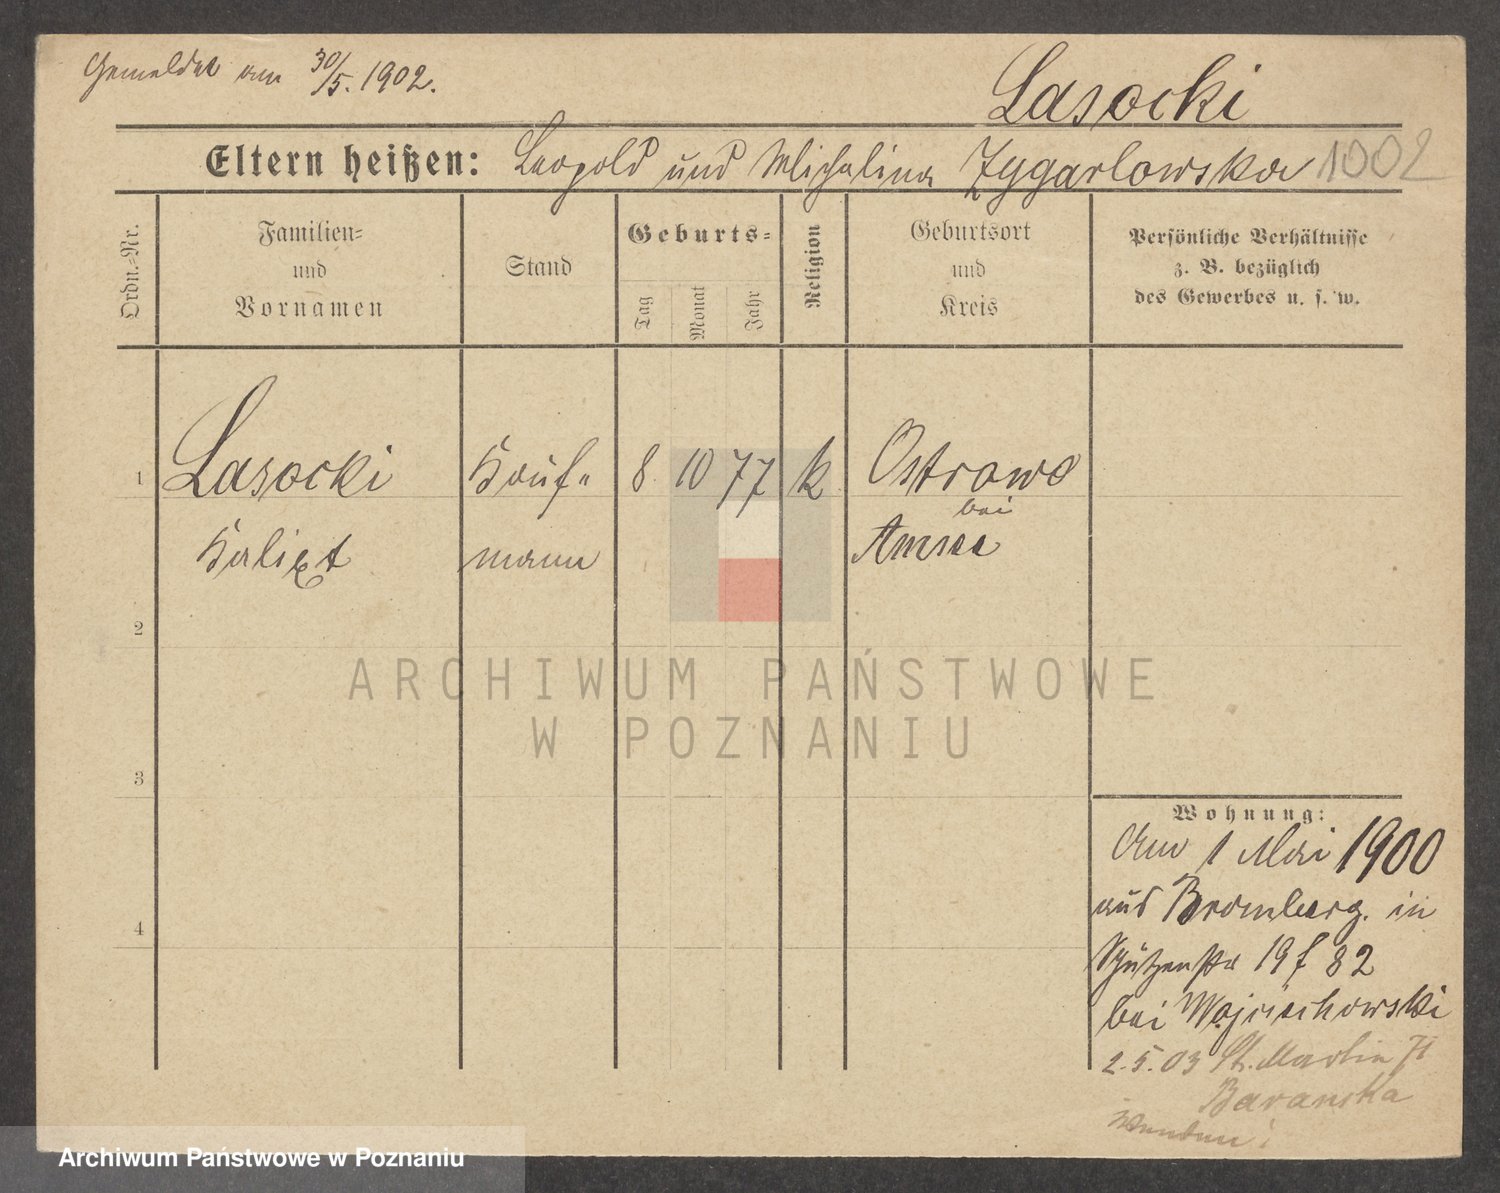 Gemeldet am 30/5. 1902.
Lasocki
Eltern heißen: Leopold und Michalina Zygarlowska 1002
Ordn.=Nr.
Familien=
und
Vornamen
Stand
Geburts=
Tag
Monat
Jahr
Religion
Geburtsort
und
Kreis
Persönliche Verhältnisse
z. B. bezüglich
des Gewerbes u. s. w.
1 Lasocki Kauf= 8. 10 77 k Ostrowo
bei
Kalixt mann Amsee
2
ARCHIWUM PAŃSTWOWE
W POZNANIU
3
Wohnung:
Am 1 Mai 1900
aus Bromberg. in
4
Schützenstr 19 f 82
bei Wojciechowski
2.5.03 St. Martin
Baranska
Wenden!
Archiwum Państwowe w Poznaniu